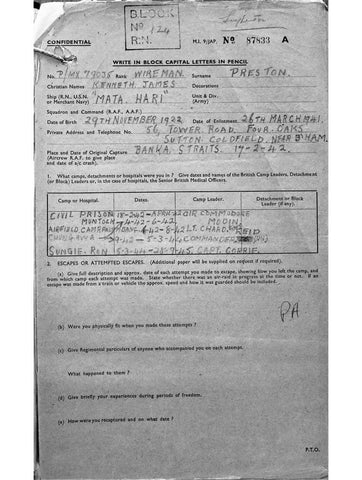 BLOCK
No
124
R.N.
Singleton
CONFIDENTIAL
M.I. 9/JAP. No 87833 A
WRITE IN BLOCK CAPITAL LETTERS IN PENCIL
No. P/MX.79038 Rank WIREMAN. Surname PRESTON.
Christian Names KENNETH JAMES Decorations
Ship (R.N., U.S.N. or Merchant Navy) "MATA HARI" Unit & Div. (Army)
Squadron and Command (R.A.F., A.A.F.)
Date of Birth 29TH NOVEMBER 1922 Date of Enlistment 26TH MARCH 1941.
Private Address and Telephone Number 56, TOWER ROAD, FOUR OAKS
SUTTON COLDFIELD, NEAR B'HAM.
Place and Date of Original Capture BANKA STRAITS. 17-2-42.
(Aircrew R.A.F. to give place
and date of a/c crash)
1. What camps, detachments or hospitals were you in? Give dates and names of the British Camp Leaders, Detachment
(or Block) Leaders or, in the case of hospitals, the Senior British Medical Officers.
Camp or Hospital. Dates. Camp Leader. Detachment or Block Leader (if any).
CIVIL PRISON 18-2-42-APR 42 AIR COMMODORE
MUNTOCK 4-42-6-42. MODIN
AIRFIELD CAMP 6-42-8-42 LT. CHARD.
9-42-5-3-44 COMMANDER REID (RN)
SUNGIE. RON 5-3-44-28-9-45 CAPT. CORRIE.
2. ESCAPES OR ATTEMPTED ESCAPES. (Additional paper will be supplied on request if required).
(a) Give full description and approx. date of each attempt you made to escape, showing how you left the camp, and
from which camp each attempt was made. State whether there was an air-raid in progress at the time or not. If an
escape was made from a train or vehicle the approx. speed and how it was guarded should be included.
PA
(b) Were you physically fit when you made these attempts?
(c) Give Regimental particulars of anyone who accompanied you on each attempt.
What happened to them?
(d) Give briefly your experiences during periods of freedom.
(e) How were you recaptured and on what date?
P.T.O.